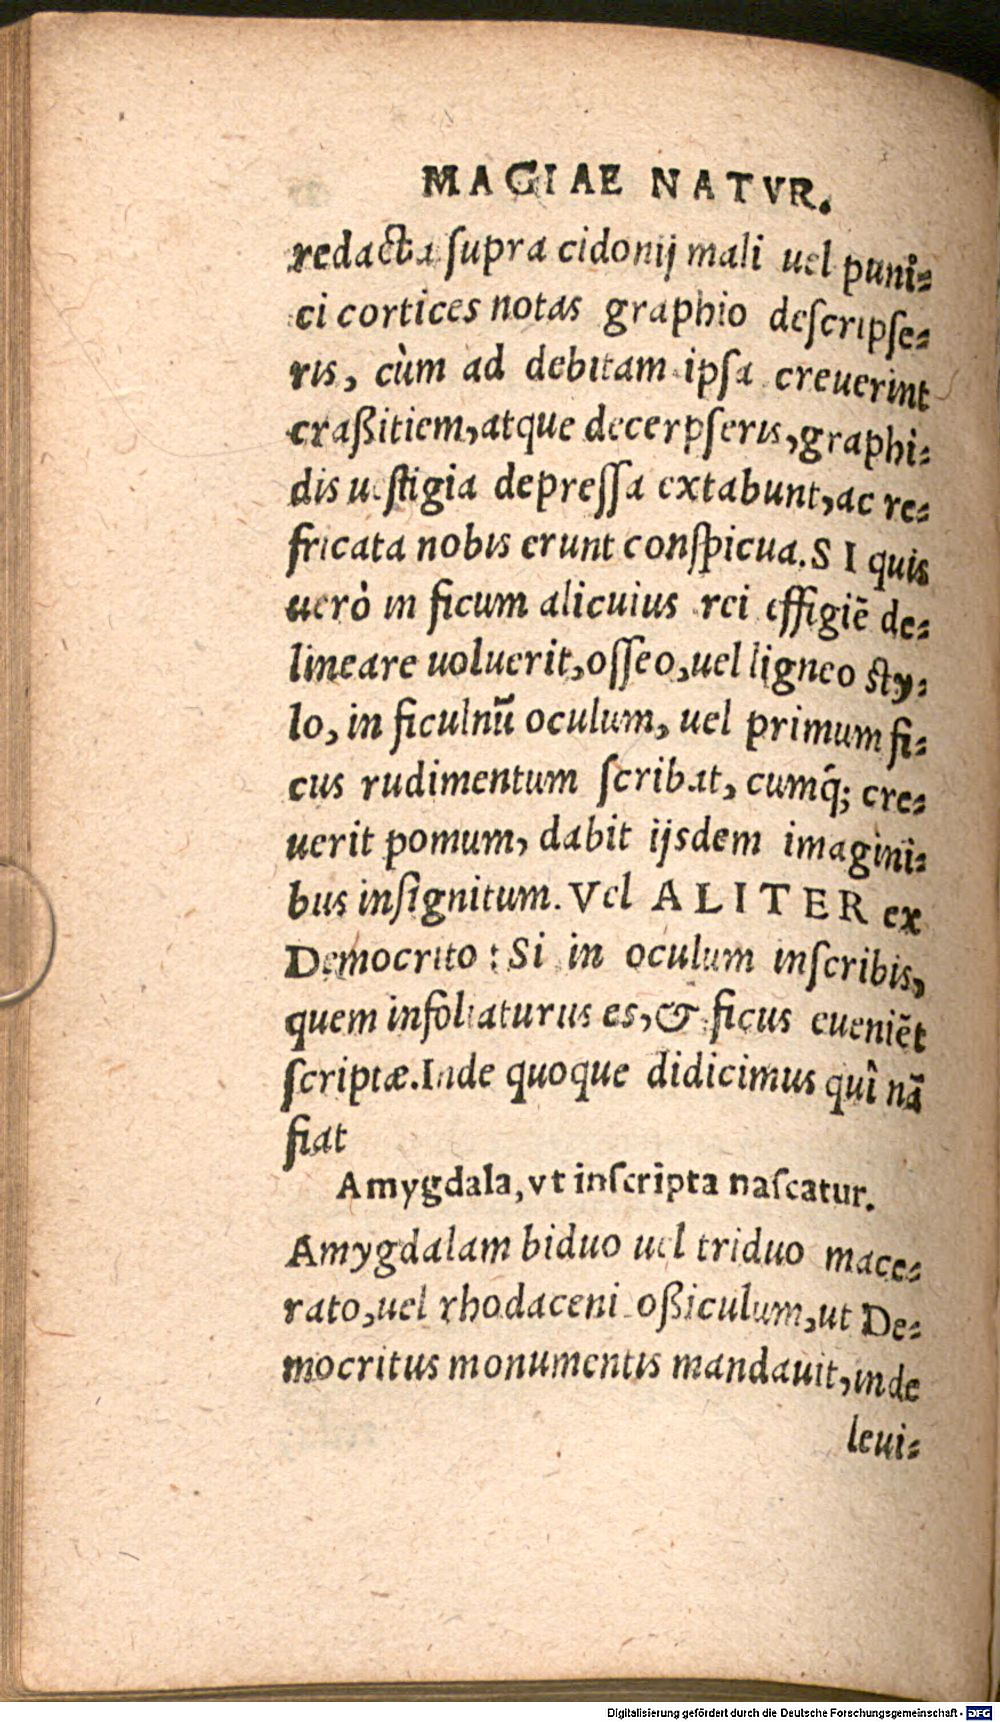 MAGIAE NATVR.
redacta ſupra cidonij mali uel puni⸗
ci cortices notas graphio deſcripſe⸗
ris, cùm ad debitam ipſa creuerint
craßitiem, atque decerpſeris, graphi⸗
dis ueſtigia depreſſa extabunt, ac re⸗
fricata nobis erunt conſpicua. SI quis
uerò in ficum alicuius rei effigiẽ de⸗
lineare uoluerit, oſſeo, uel ligneo ſty⸗
lo, in ficulnũ oculum, uel primum fi⸗
cus rudimentum ſcribat, cumq́; cre⸗
uerit pomum, dabit ijsdem imagini⸗
bus inſignitum. Vel ALITER ex
Democrito: Si in oculum inſcribis,
quem infoliaturus es, & ficus eueniẽt
ſcriptæ. Inde quoque didicimus quî nã
fiat
Amygdala, vt inſcripta naſcatur.
Amygdalam biduo uel triduo mace⸗
rato, uel rhodaceni oßiculum, ut De⸗
mocritus monumentis mandauit, inde
leui⸗
Digitalisierung gefördert durch die Deutsche Forschungsgemeinschaft - DFG